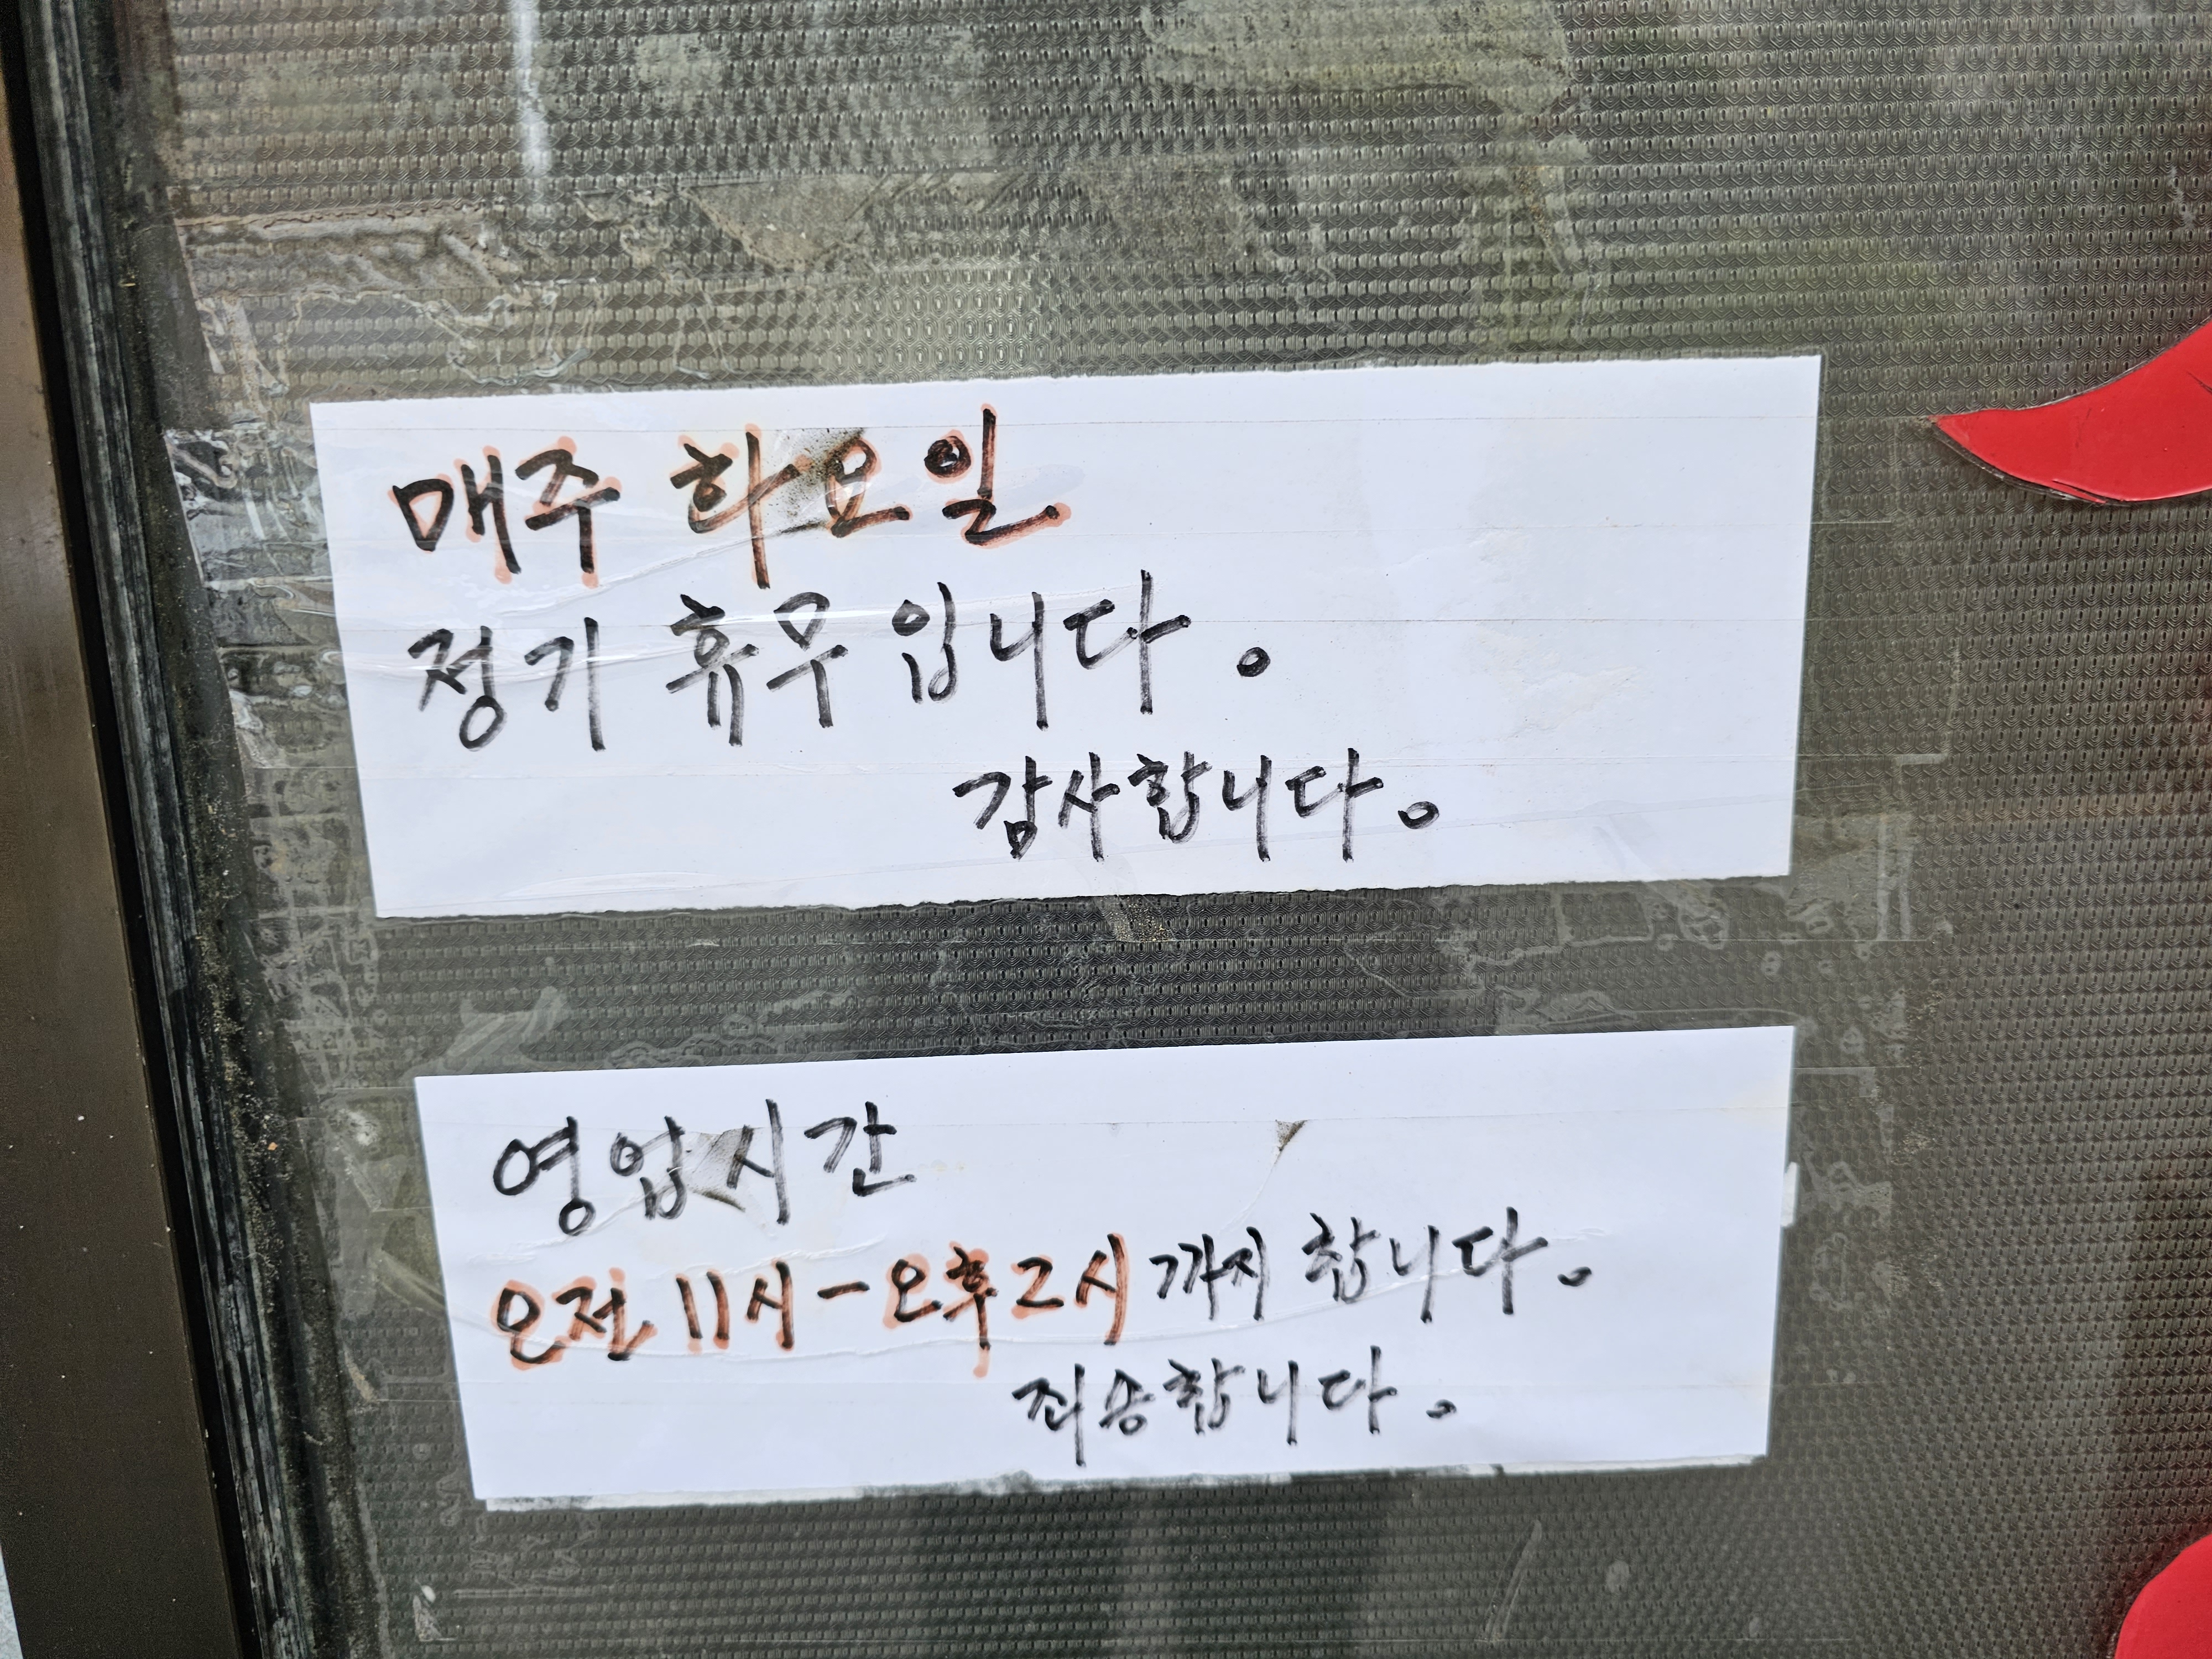 매주 화요일
정기 휴무입니다.
감사합니다.
영업시간
오전 11시-오후2시까지 합니다.
죄송합니다.